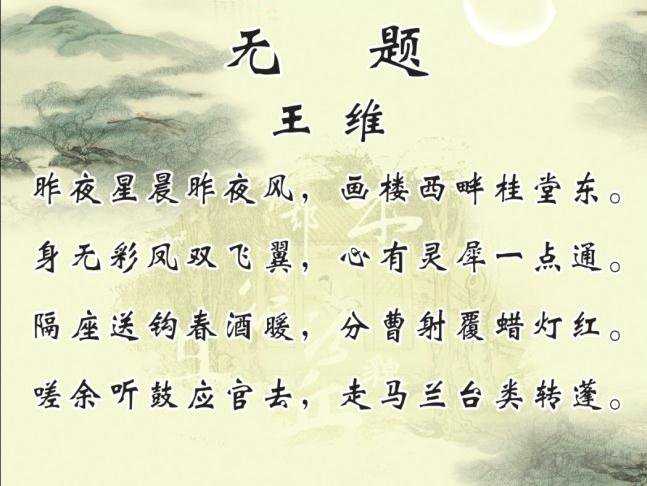 无 题
王 维
昨夜星晨昨夜风，画楼西畔桂堂东。
身无彩凤双飞翼，心有灵犀一点通。
隔座送钩春酒暖，分曹射覆蜡灯红。
嗟余听鼓应官去，走马兰台类转蓬。